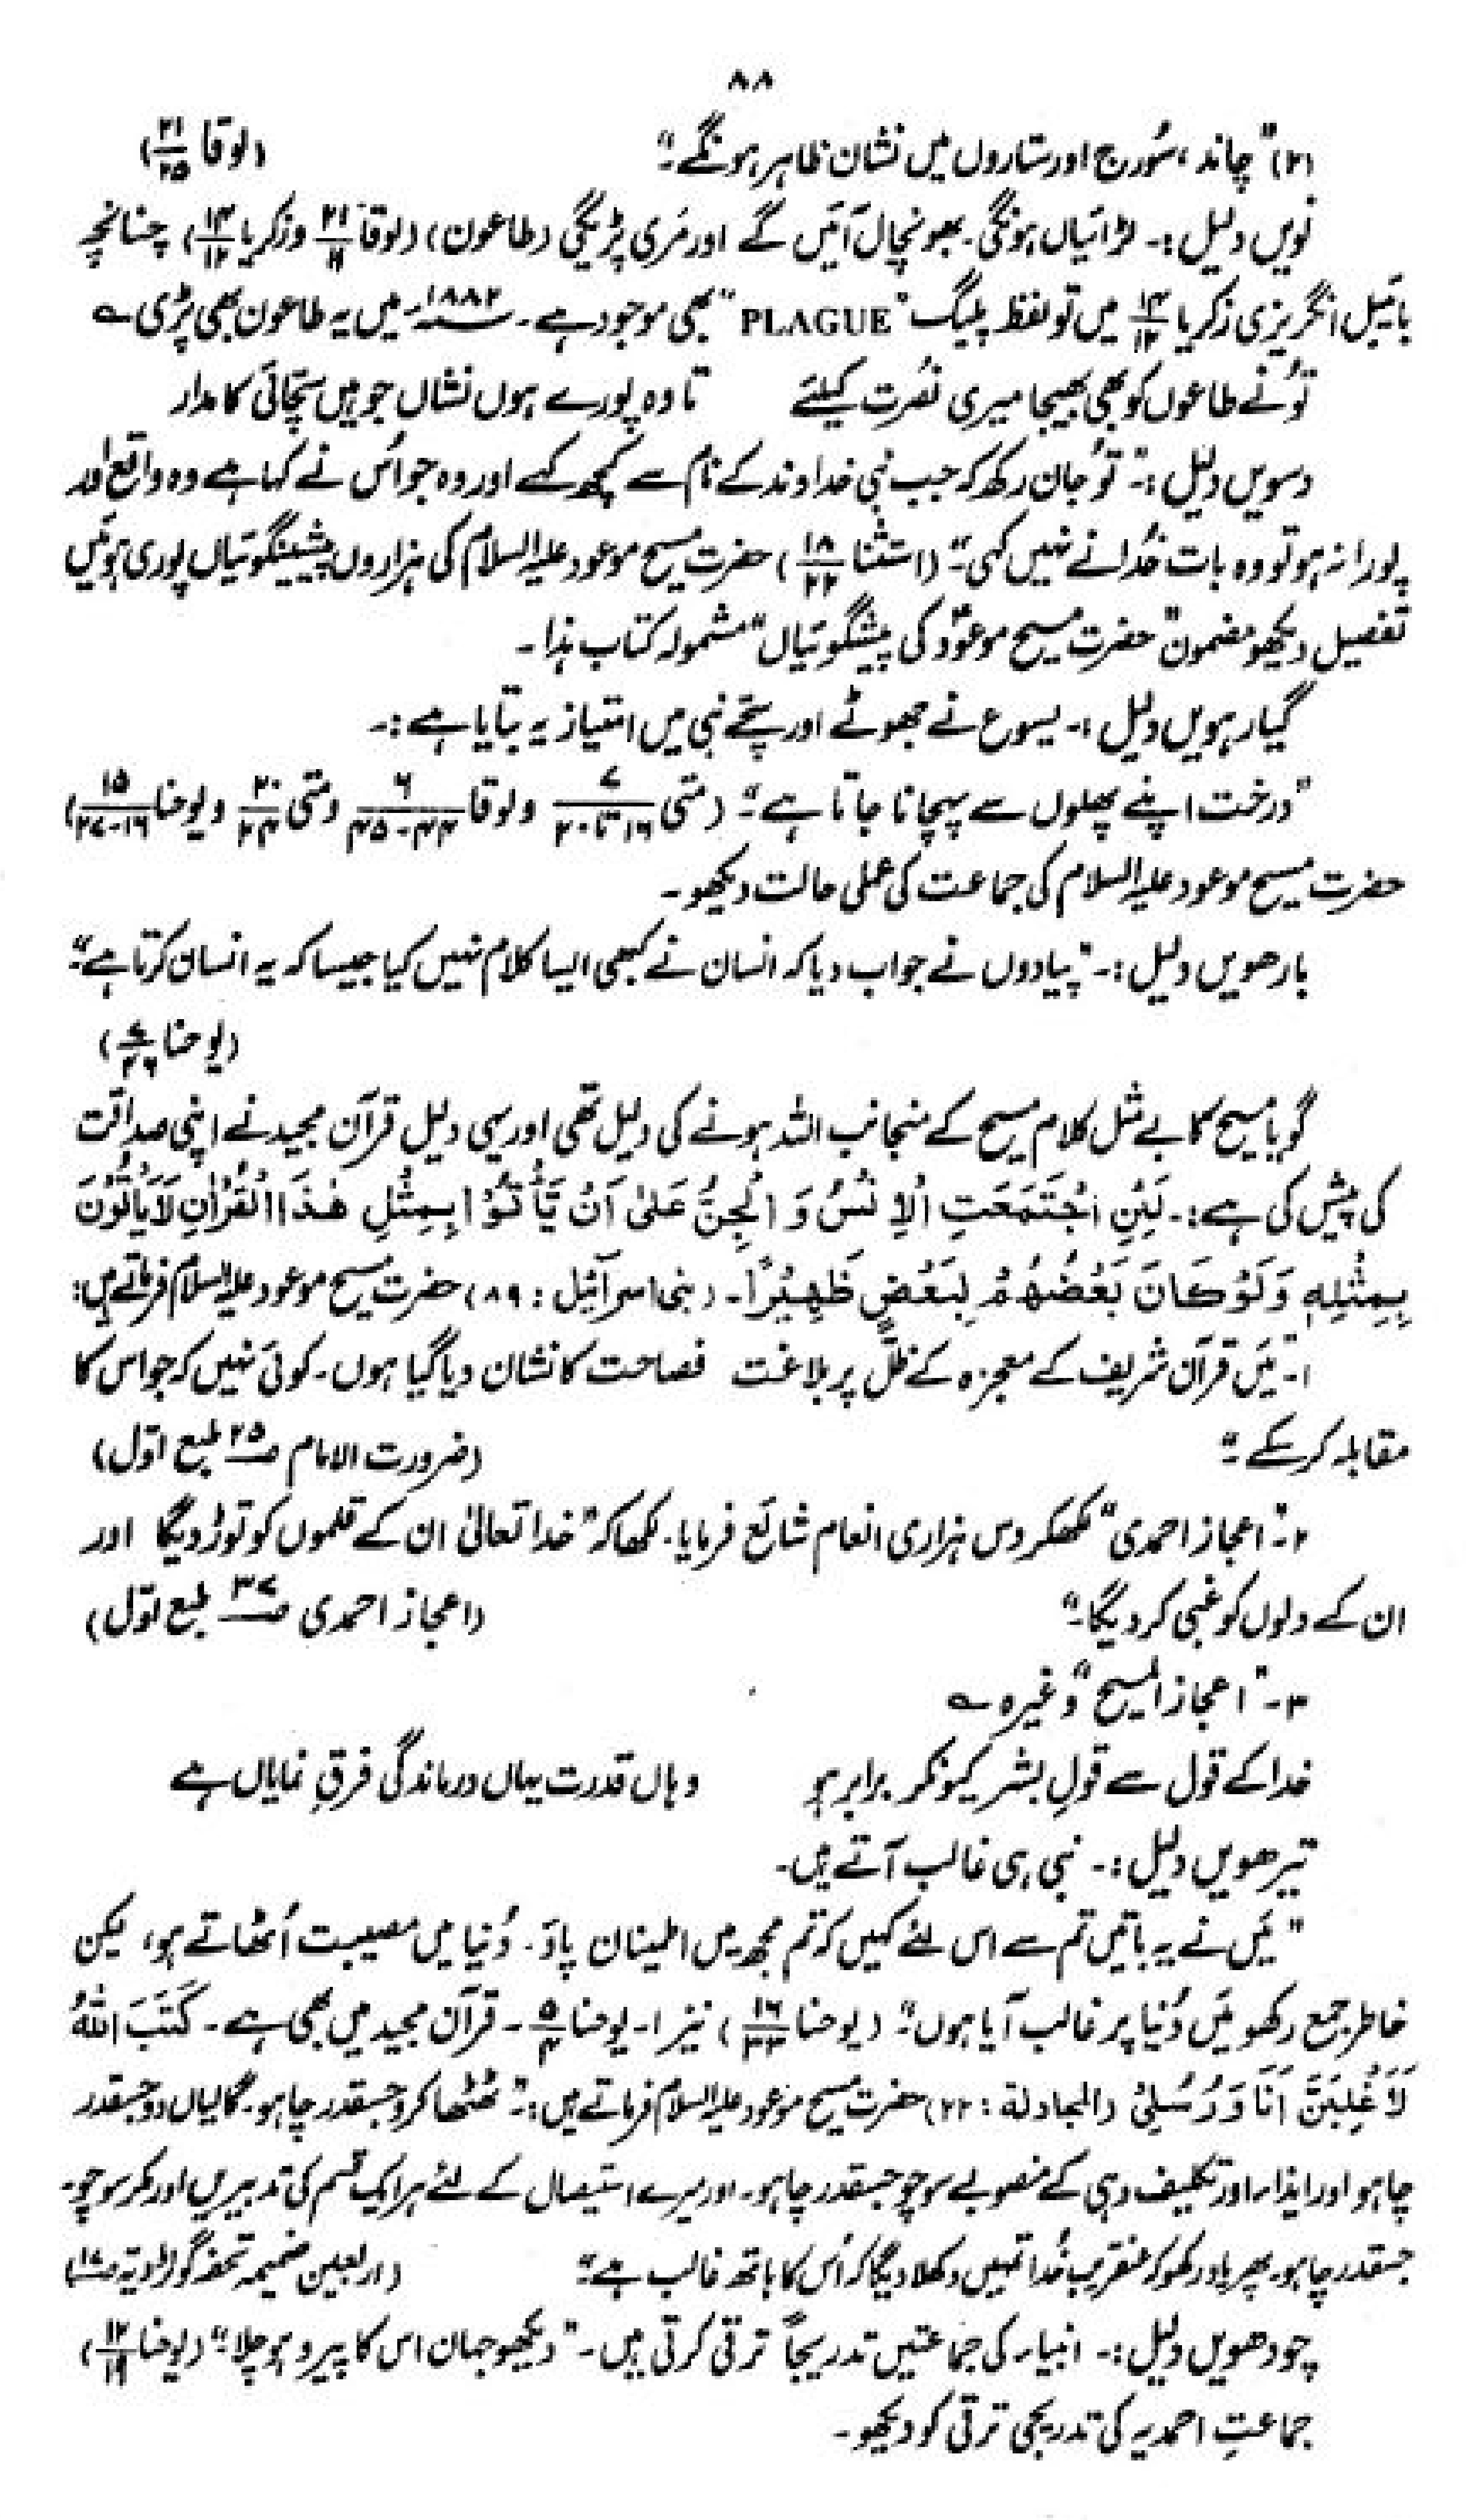 ۸۸
(۲) "چاند، سُورج اور ستاروں میں نشان ظاہر ہونگے۔" (لوقا ۲۱/۲۵)
نویں دلیل:۔ لڑائیاں ہونگی۔ بھونچال آئیں گے اور مَری پڑیگی (طاعون) (لوقا ۲۱/۱۱ و زکریا ۱۴/۱۲) چنانچہ
بائیبل انگریزی زکریا ۱۴/۱۲ میں تو لفظ پلیگ "PLAGUE" بھی موجود ہے۔ ۱۸۸۲ء میں یہ طاعون بھی پڑی ؎
تُو نے طاعوں کو بھی بھیجا میری نصُرت کیلئے تا وہ پورے ہوں نشاں جو ہیں سچّائی کا مدار
دسویں دلیل:۔ "تُو جان رکھ کہ جب نبی خداوند کے نام سے کچھ کہے اور وہ جو اُس نے کہا ہے وہ واقع اور
پورا نہ ہو تو وہ بات خُدا نے نہیں کہی۔" (استثنا ۱۸/۲۲) حضرت مسیح موعود علیہ السلام کی ہزاروں پیشینگوئیاں پوری ہوئیں
تفصیل دیکھو مضمون "حضرت مسیح موعودؑ کی پیشگوئیاں" مشمولہ کتاب ہٰذا۔
گیارہویں دلیل:۔ یسوع نے جھوٹے اور سچّے نبی میں امتیاز یہ بتایا ہے:۔
"درخت اپنے پھلوں سے پہچانا جاتا ہے۔" (متی ۷/۱۶ تا ۲۰ و لوقا ۶/۴۴-۴۵ و متی ۲۰/۲۴ و یوحنا ۱۵/۱۶-۲۷)
حضرت مسیح موعود علیہ السلام کی جماعت کی عملی حالت دیکھو۔
بارھویں دلیل:۔ "پیادوں نے جواب دیا کہ انسان نے کبھی ایسا کلام نہیں کیا جیسا کہ یہ انسان کرتا ہے"
(یوحنا ۷/۴۶)
گویا مسیح کا بے مثل کلام مسیح کے منجانب اللہ ہونے کی دلیل تھی اور یہی دلیل قرآن مجید نے اپنی صداقت
کی پیش کی ہے:۔ لَئِنِ اجْتَمَعَتِ الْاِنْسُ وَ الْجِنُّ عَلٰی اَنْ یَّاْتُوْا بِمِثْلِ ھٰذَا الْقُرْاٰنِ لَا یَاْتُوْنَ
بِمِثْلِہٖ وَلَوْ کَانَ بَعْضُھُمْ لِبَعْضٍ ظَھِیْرًا۔ (بنی اسرآئیل : ۸۹) حضرت مسیح موعود علیہ السلام فرماتے ہیں:
۱۔ "مَیں قرآن شریف کے معجزہ کے ظلّ پر بلاغت فصاحت کا نشان دیا گیا ہوں۔ کوئی نہیں کہ جو اس کا
مقابلہ کر سکے۔" (ضرورت الامام ص۲۵ طبع اوّل)
۲۔ "اعجاز احمدی" لکھکر دس ہزاری انعام شائع فرمایا۔ لکھا کہ "خدا تعالیٰ ان کے قلموں کو توڑ دیگا اور
ان کے دلوں کو غبی کر دیگا۔" (اعجاز احمدی ص۳۷ طبع اوّل)
۳۔ "اعجاز المسیح" وغیرہ ؎
خدا کے قول سے قولِ بشر کیونکر برابر ہو وہاں قدرت یہاں درماندگی فرقِ نمایاں ہے
تیرھویں دلیل:۔ نبی ہی غالب آتے ہیں۔
"مَیں نے یہ باتیں تم سے اس لئے کہیں کہ تم مجھ میں اطمینان پاؤ۔ دُنیا میں مصیبت اُٹھاتے ہو، لیکن
خاطر جمع رکھو مَیں دُنیا پر غالب آیا ہوں۔" (یوحنا ۱۶/۳۳) نیز ۱۔ یوحنا ۵/۴۔ قرآن مجید میں بھی ہے۔ کَتَبَ اللّٰہُ
لَاَغْلِبَنَّ اَنَا وَ رُسُلِیْ (المجادلة : ۲۲) حضرت مسیح موعود علیہ السلام فرماتے ہیں:۔ "ٹھٹھا کرو جسقدر چاہو۔ گالیاں دو جسقدر
چاہو اور ایذاء اور تکلیف دہی کے منصوبے سوچو جسقدر چاہو۔ اور میرے استیصال کے لئے ہر ایک قسم کی تدبیریں اور مکر سوچو۔
جسقدر چاہو۔ پھر یاد رکھو کہ عنقریب خُدا تمہیں دکھلا دیگا کہ اُس کا ہاتھ غالب ہے۔" (اربعین ضمیمہ تحفہ گولڑویہ
چودھویں دلیل:۔ انبیاء کی جماعتیں تدریجاً ترقی کرتی ہیں۔ "دیکھو جہان اس کا پیرو ہو چلا۔" (یوحنا ۱۲/۱۹)
جماعتِ احمدیہ کی تدریجی ترقی کو دیکھو۔